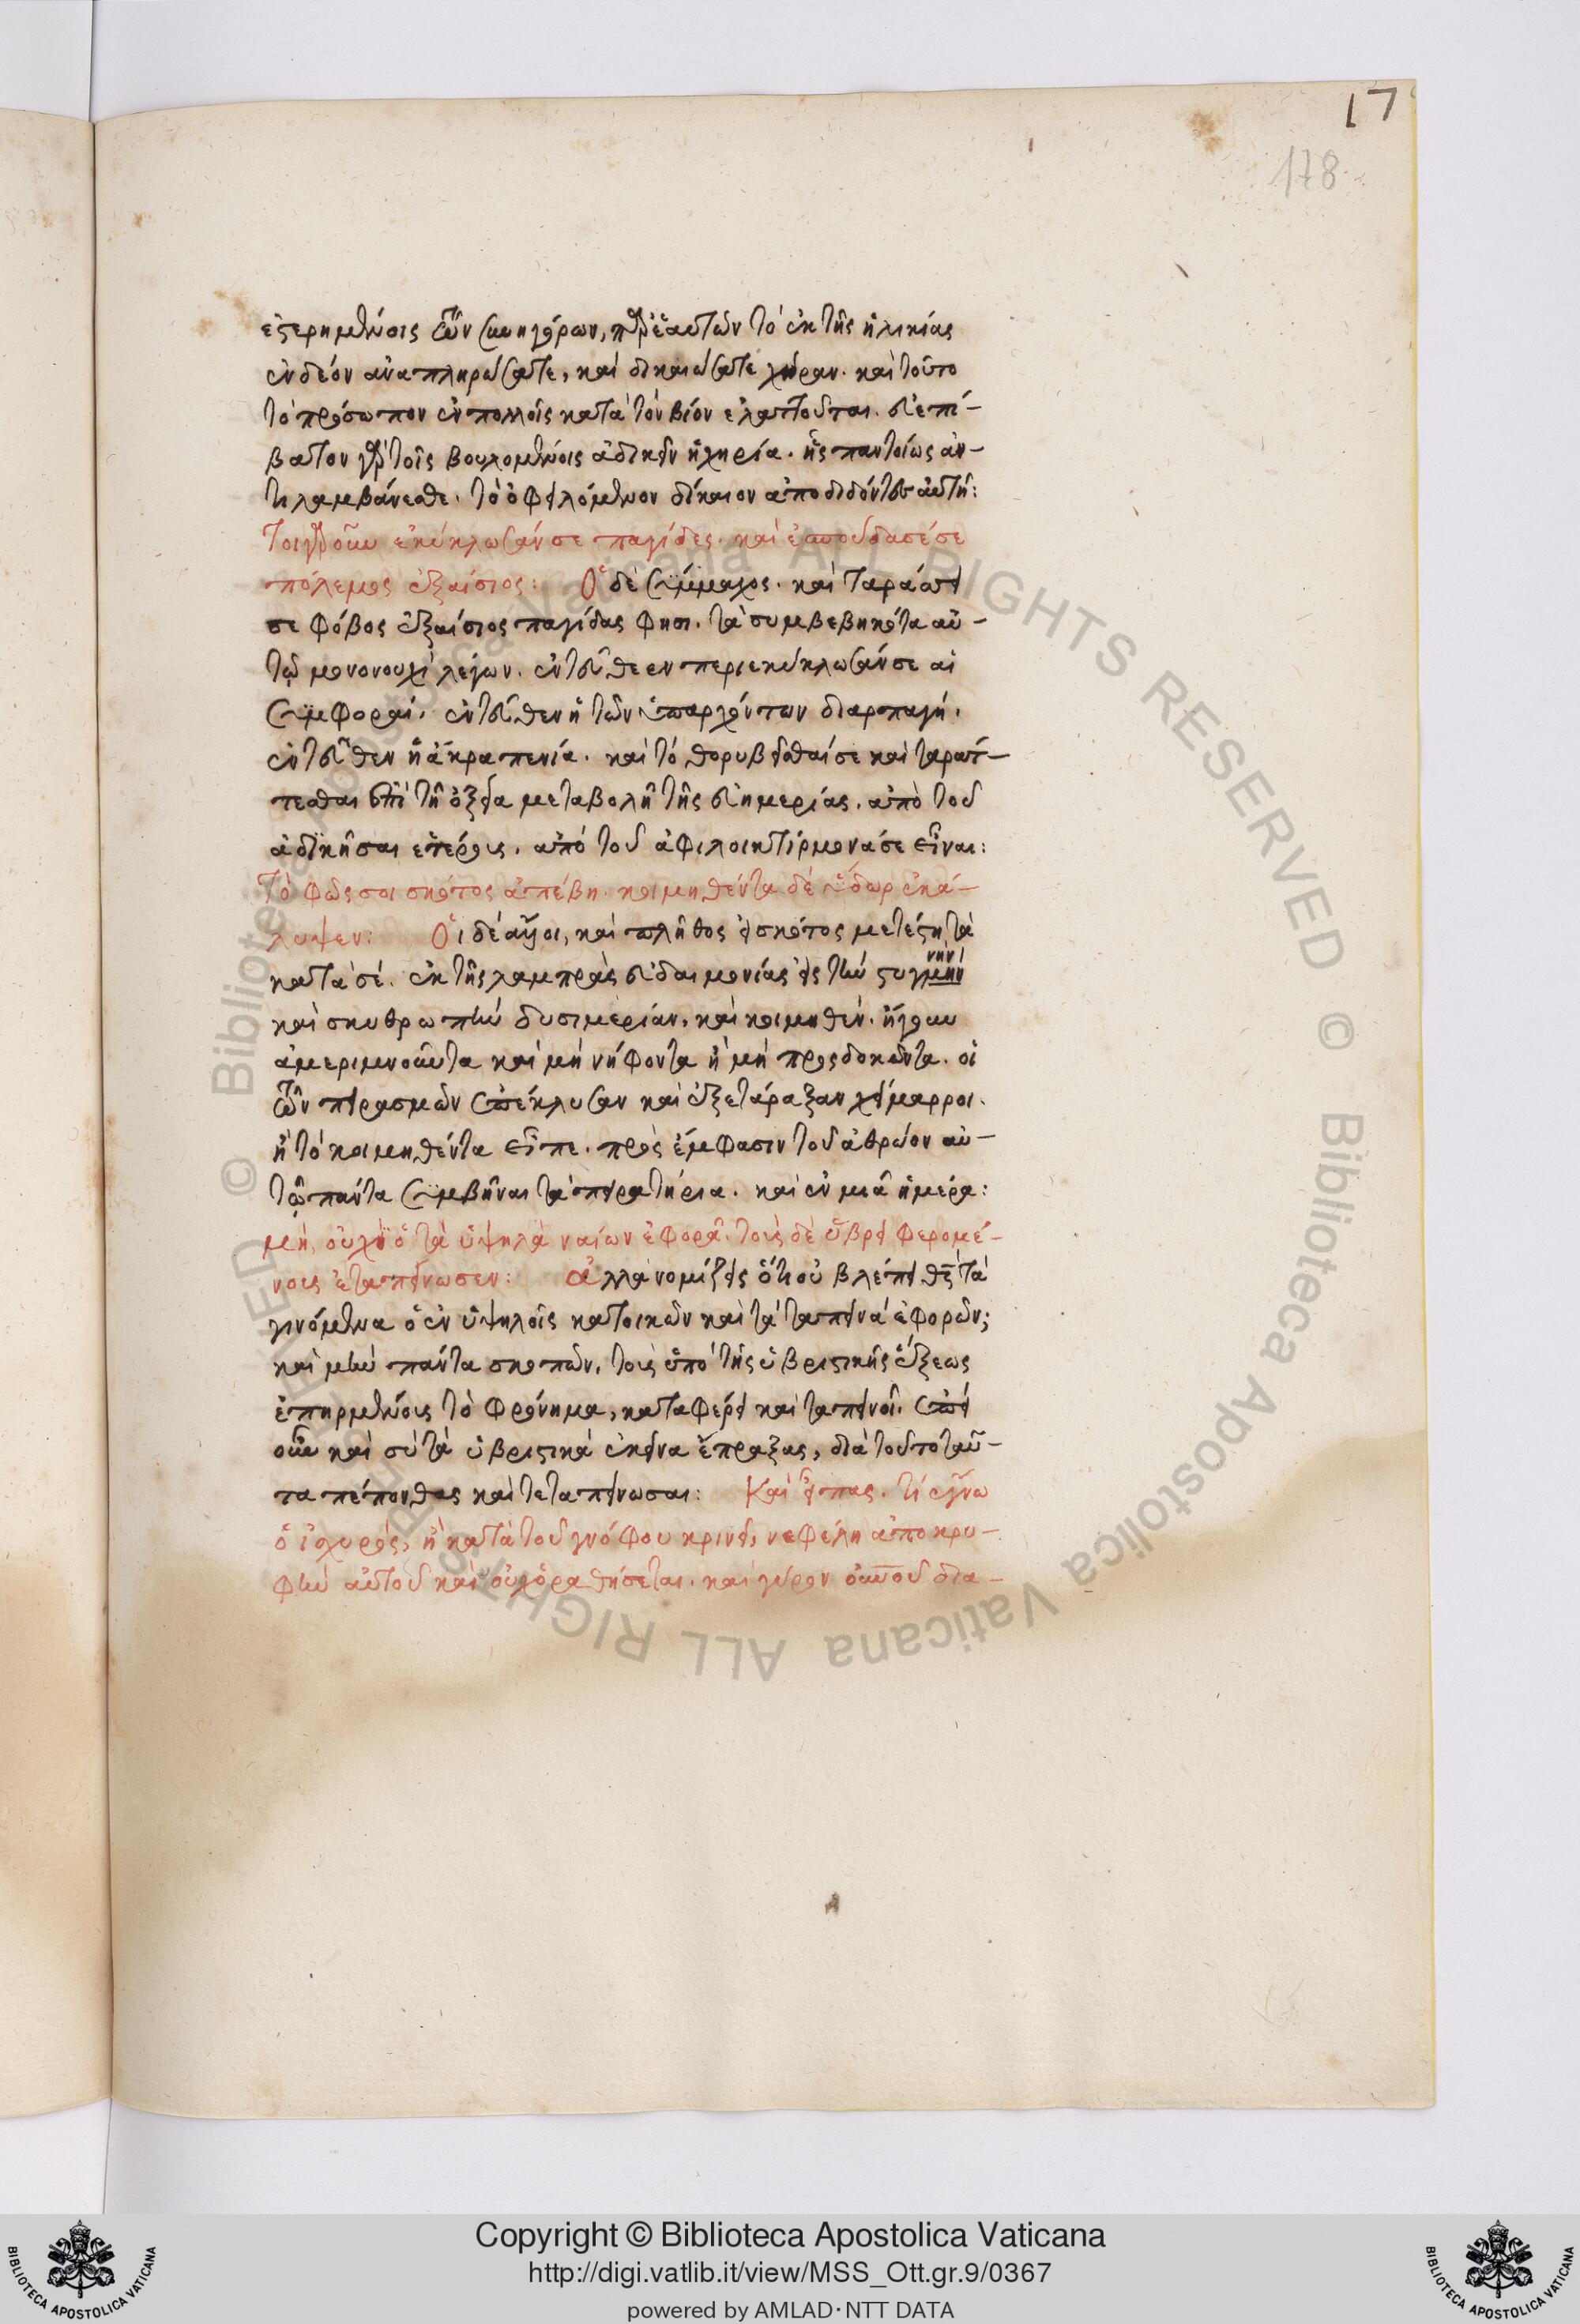 17
178
ἐστερημένοις τῶν συνηγόρων, παρ' ἑαυτῶν τὸ ἐκ τῆς ἡλικίας
ἐνδέον ἀναπληρώσατε, καὶ δικαιώσατε χήραν. καὶ τοῦτο
τὸ πρόσωπον ἐν πολλοῖς κατὰ τὸν βίον ἐλαττοῦται. εὐεπί-
βατον γὰρ τοῖς βουλομένοις ἀδικεῖν ἡ χηρία. ἧς παντοίως ἀν-
τιλαμβάνεσθε. τὸ ὀφειλόμενον δίκαιον ἀποδιδόντες αὐτῇ:
Τοιγαροῦν ἐκύκλωσάν σε παγίδες. καὶ ἐσπούδασέ σε
πόλεμος ἐξαίσιος: Ὁ δὲ Σύμμαχος. καὶ ταράσσει
σε φόβος ἐξαίσιος παγίδας φησι. τὰ συμβεβηκότα αὐ-
τῷ μονονουχὶ λέγων. ἐντεῦθεεν περιεκύκλωσάν σε αἱ
συμφοραί. ἐντεῦθεν ἡ τῶν ὑπαρχόντων διαρπαγή.
ἐντεῦθεν ἡ ἄκρα πενία. καὶ τὸ θορυβεῖσθαί σε καὶ ταράτ-
τεσθαι ἐπὶ τῇ ὀξεῖα μεταβολῇ τῆς εὐημερίας. ἀπὸ τοῦ
ἀδικῆσαι ἑτέρους. ἀπὸ τοῦ ἀφιλοικτίρμονά σε εἶναι:
Τὸ φῶς σοι σκότος ἀπέβη. κοιμηθέντα δὲ ὕδωρ ἐκά-
λυψεν: Οἱ δέ αὖοι, καὶ πλῆθος εἰ σκότος μετέστη τὰ
κατὰ σέ. ἐκ τῆς λαμπρᾶς εὐδαιμονίας εἰς τὴν στυγμὴν
νὴν
καὶ σκυθρωπὴν δυσιμερίαν. καὶ κοιμηθέν. ἤγουν
ἀμεριμνοῦντα καὶ μὴ νήφοντα ἢ μὴ προσδοκῶντα. οἱ
τῶν πειρασμῶν ἐπέκλυσαν καὶ ἐξετάραξαν χείμαρροι.
ἢ τὸ κοιμηθέντα εἶπε. πρὸς ἔμφασιν τοῦ ἀθρόον αὐ-
τῷ πάντα συμβῆναι τὰ πειρατήρια. καὶ ἐν μιᾷ ἡμέρα:
Μὴ, οὐχὶ ὁ τὰ ὑψηλὰ ναίων ἐφορᾷ. τοὺς δὲ ὕβρει φερομέ-
νους ἐταπείνωσεν: Ἀλλὰ νομίζεις ὅτι οὐ βλέπει θς τὰ
γινόμενα ὁ ἐν ὑψηλοῖς κατοικῶν καὶ τὰ ταπεινὰ ἐφορῶν;
καὶ μὴν πάντα σκοπῶν, τοὺς ὑπὸ τῆς ὑβριστικῆς ἕξεως
ἐπηρμένους τὸ φρόνημα, καταφέρει καὶ ταπεινοῖ. ἐπεὶ
οὖν καὶ σὺ τὰ ὑβριστικὰ ἐκεῖνα ἔπραξας, διὰ τοῦτο ταῦ-
τα πέπονθας καὶ τεταπείνωσαι: Καὶ εἶπας. τί ἔγνω
ὁ ἰσχυρός, ἢ κατὰ τοῦ γνόφου κρινεῖ, νεφέλη ἀποκρυ-
φὴ αὐτοῦ καὶ οὐχ ὁραθήσεται. καὶ γύρον οὐνοῦ δια-
Copyright © Biblioteca Apostolica Vaticana
http://digi.vatlib.it/view/MSS_Ott.gr.9/0367
powered by AMLAD·NTT DATA